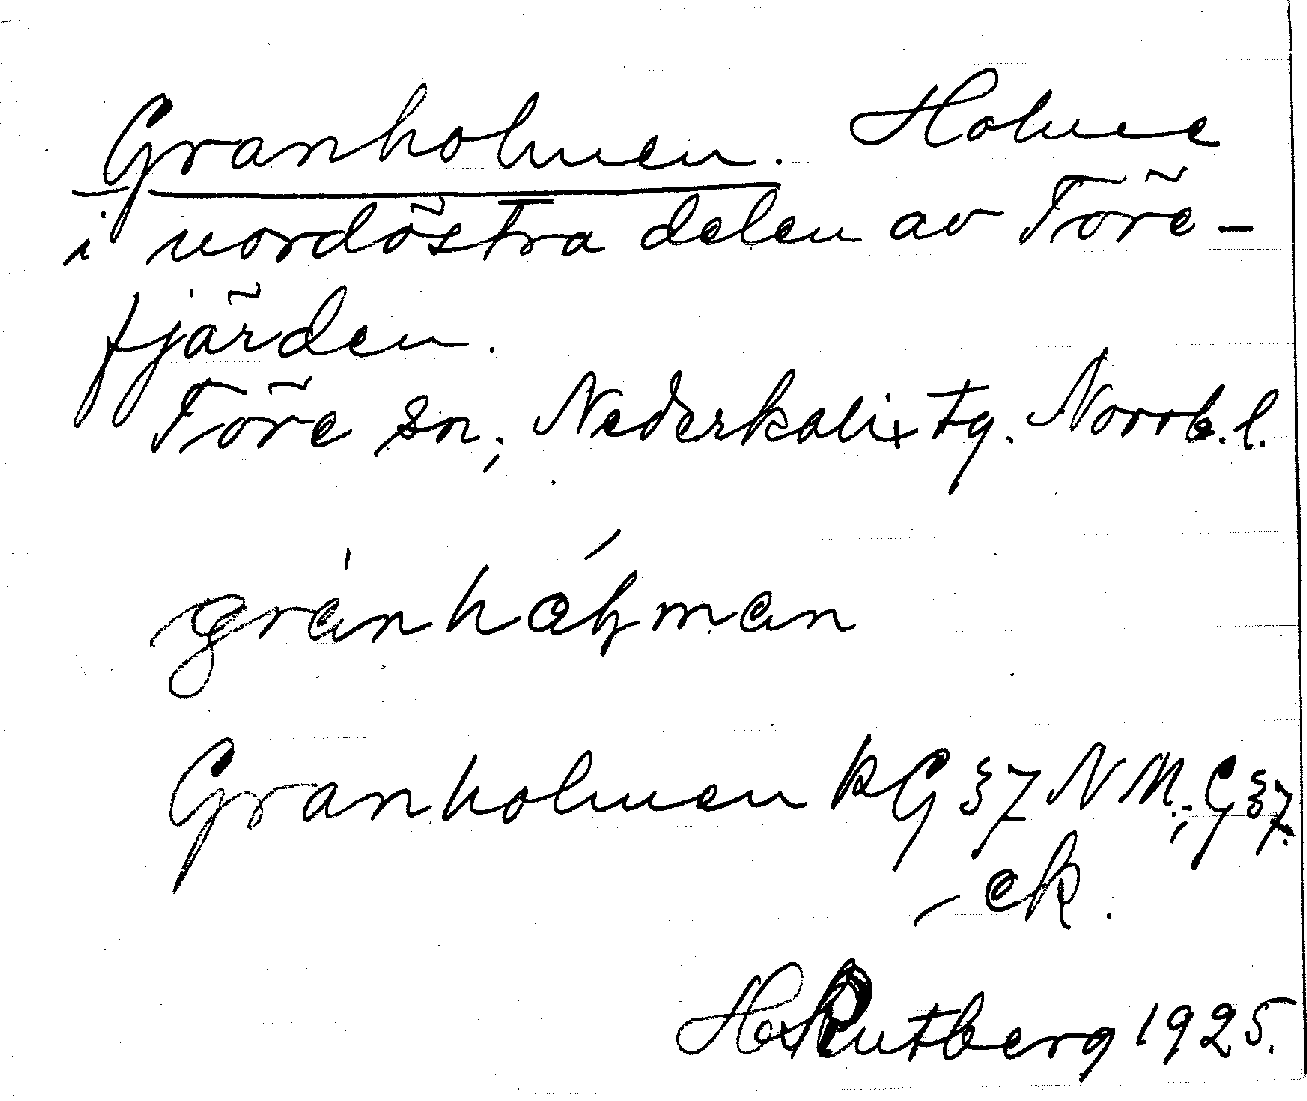 Granholmen. Holme
i nordöstra delen av Töre-
fjärden.
Töre sn, Nederkalix tg. Norrb. l.
Granholmen kG 37 NM, G 37
ck.
H. Rutberg 1925.